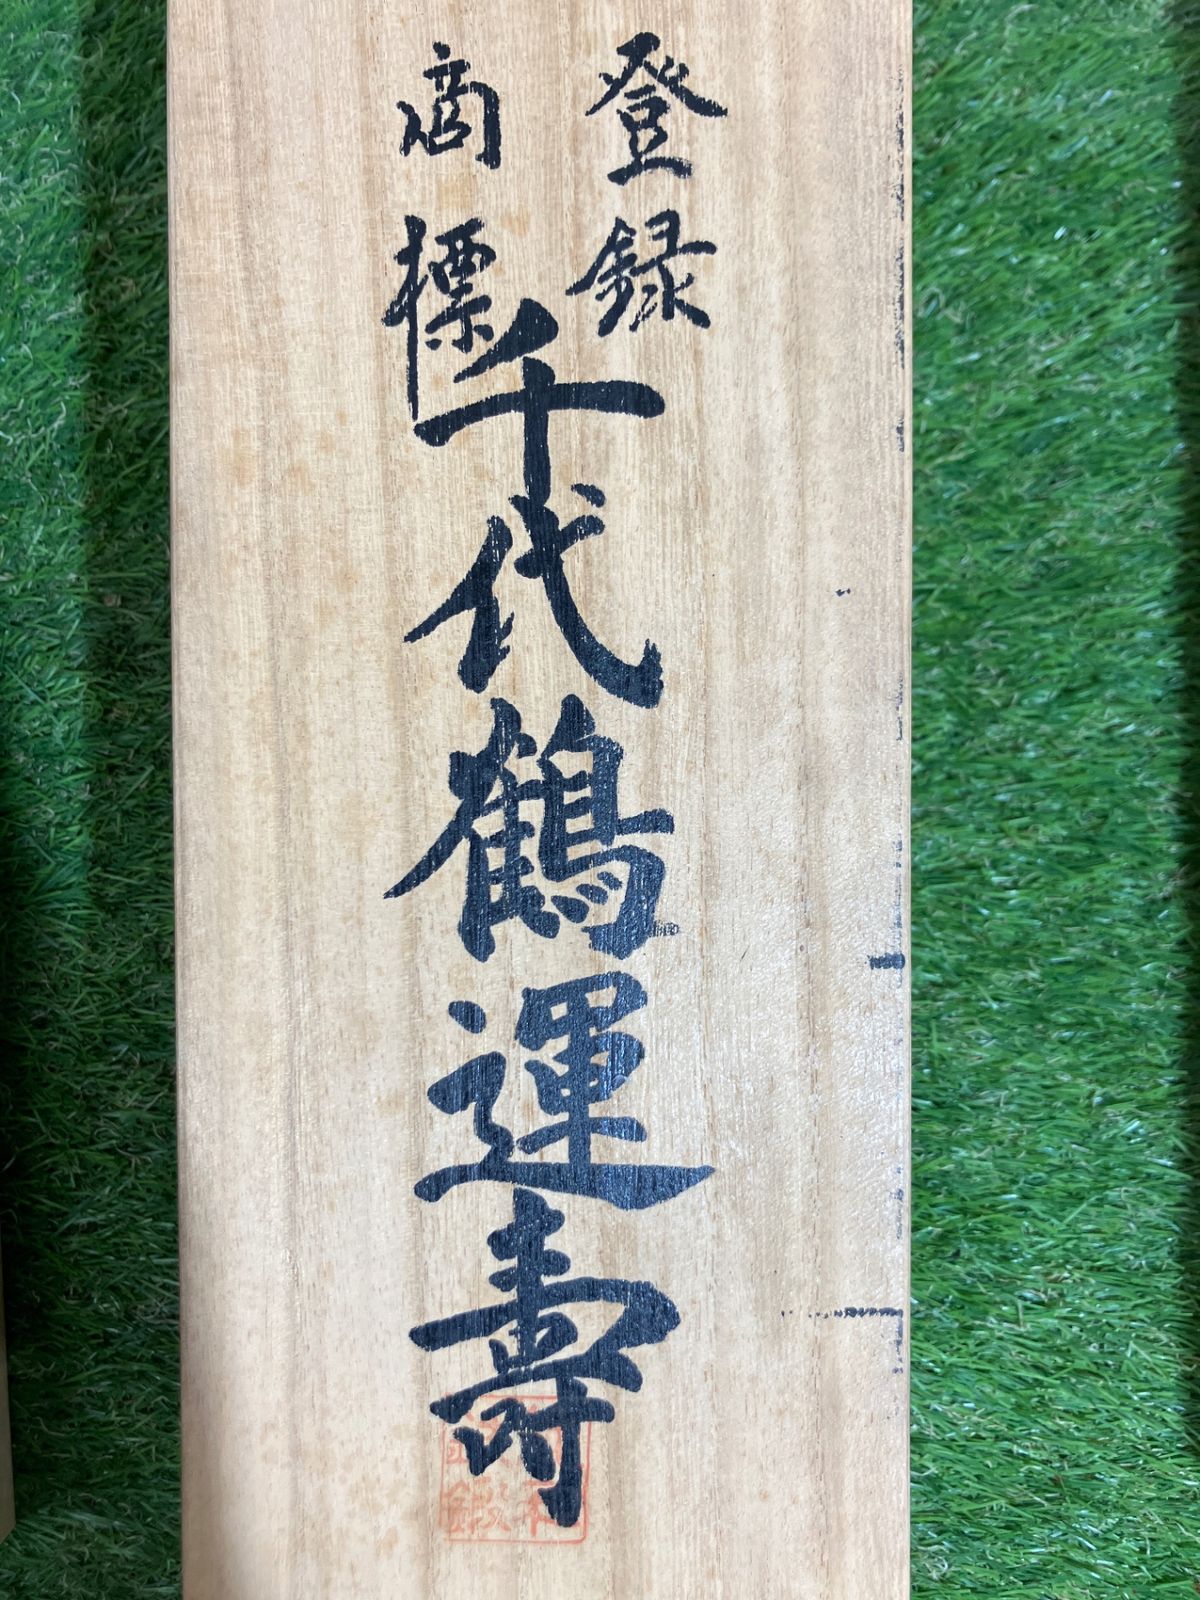 登録
商標
千代鶴運壽